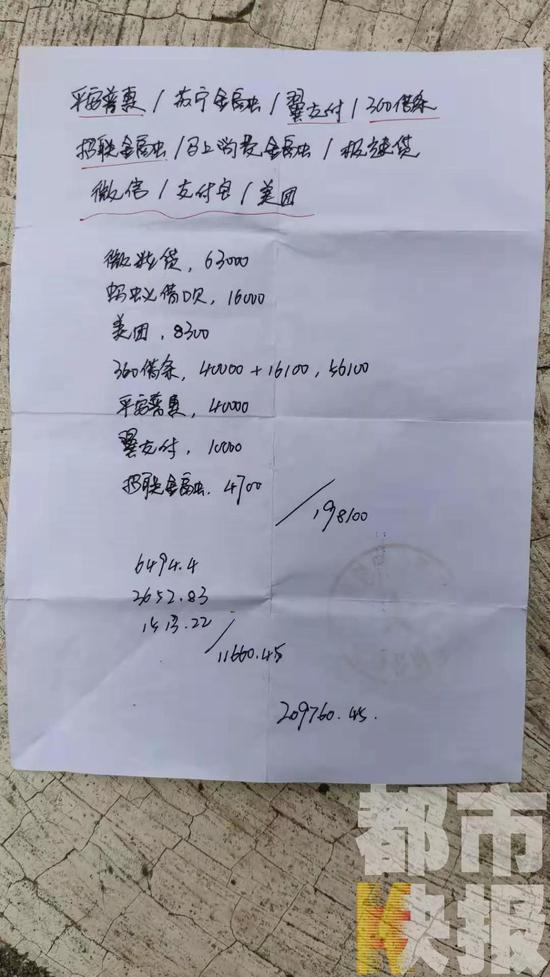 平安普惠/苏宁金融/翼支付/360借条
招联金融/马上消费金融/极速贷
微信/支付宝/美团
微粒贷,63000
蚂蚁借呗,16000
美团,8300
360借条,40000+16100,56100
平安普惠,40000
翼支付,10000
招联金融,4700
/198100
6494.4
2652.83
1513.22
/11660.45
209760.45.
都市
快报